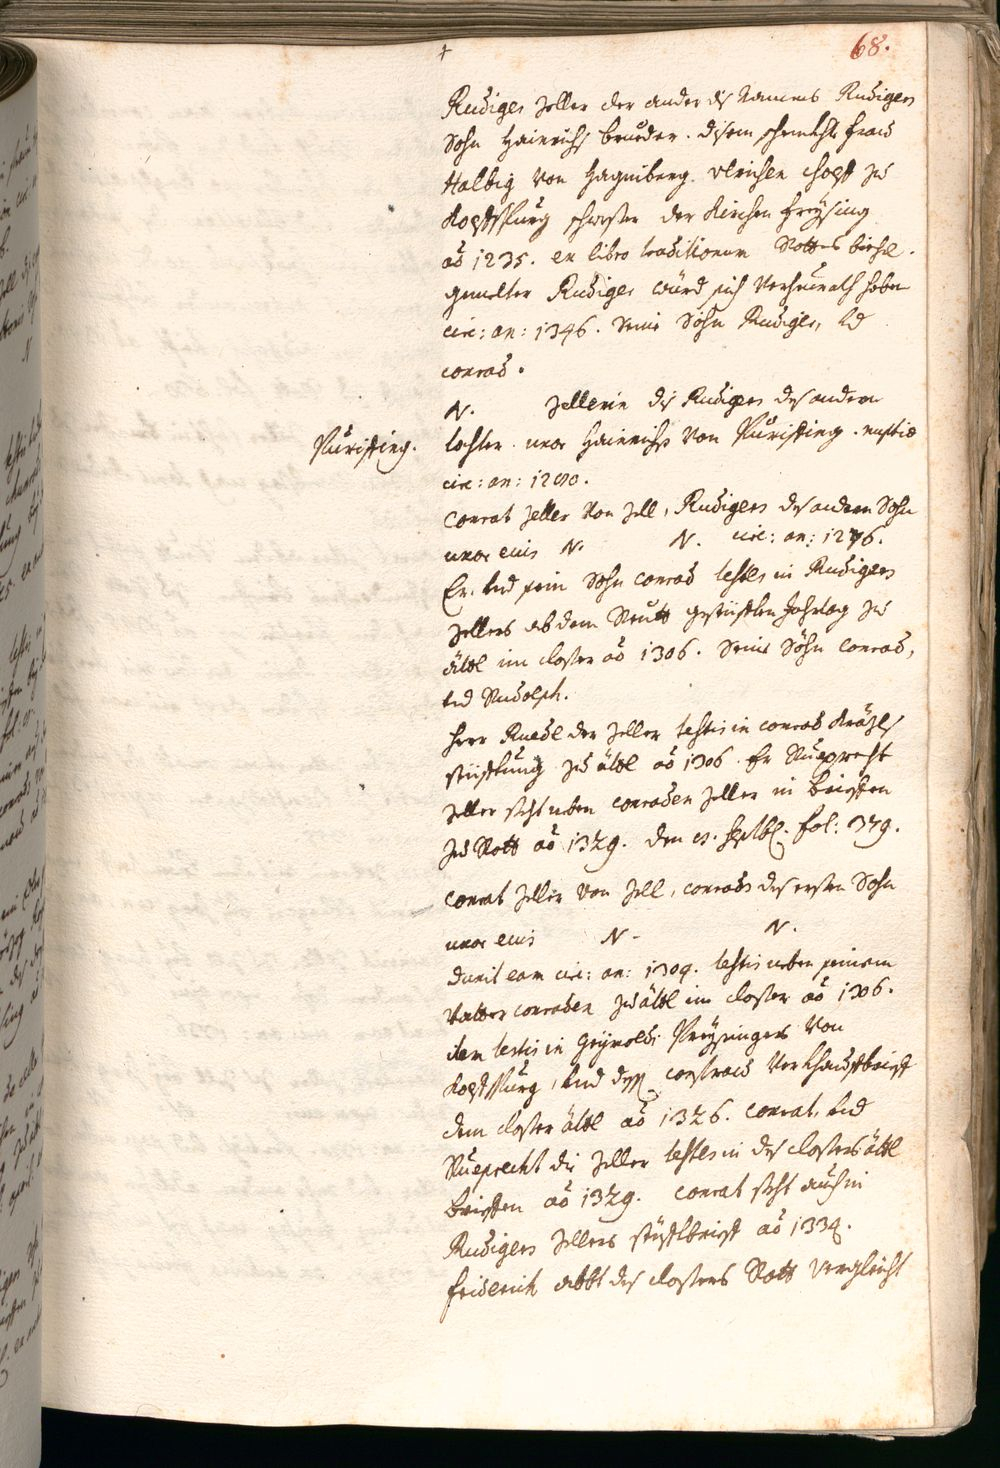 68.
Rudiger Zeller der ander diß Namens Rudigers
Sohn Hainrichs brueder. disem schenckht fraw
Halbig von Hagniberg. Ulrichen zu
schwester der Kirchen Freÿsing
aõ 1235. ex libro traditionum Rottens.
gemelter Rudiger würd sich verheurath haben
circ: an: 1246. seine Söhn Rudiger, vnd
conrad.
N. Zellerin diß Rudigers deß andern
Pürisfing.
tochter. uxor Hainrichs von Pürisfing.
circ: an: 1280.
Conrat Zeller von Zell, Rudigers deß andern Sohn
uxor eius N. N. circ: an: 1276.
Er. vnd sein Sohn conrad testes in Rudigers
Zellers ab dem Reutt gestüfften Jahrtag zu
ättl im closter aõ 1306. Seine Söhn Conrad,
vnd Rudolph.
Herr Ruedl der Zeller testis in conrad
stüfftung zu ättl aõ 1306. Er Rueprecht
Zeller steht neben conraden Zeller in briefen
zu Rott aõ 1329. den septbr. fol: 379.
Conrat Zeller von Zell, conrads deß ersten Sohn
uxor eius N. N.
duxit eam circ: an: 1309. testis neben seinem
Vatter conraden zu ättl im closter aõ 1306.
item testis in Preÿsingers von
vnd verkhauffbrieff
dem closter ättl aõ 1326. Conrat, vnd
Rueprecht die Zeller testes in deß closters ättl
brieffen aõ 1329. Conrat steht auch in
Rudigers Zellers stüfftbrieff aõ 1339.
friderich abbt deß closters Rott vergleicht